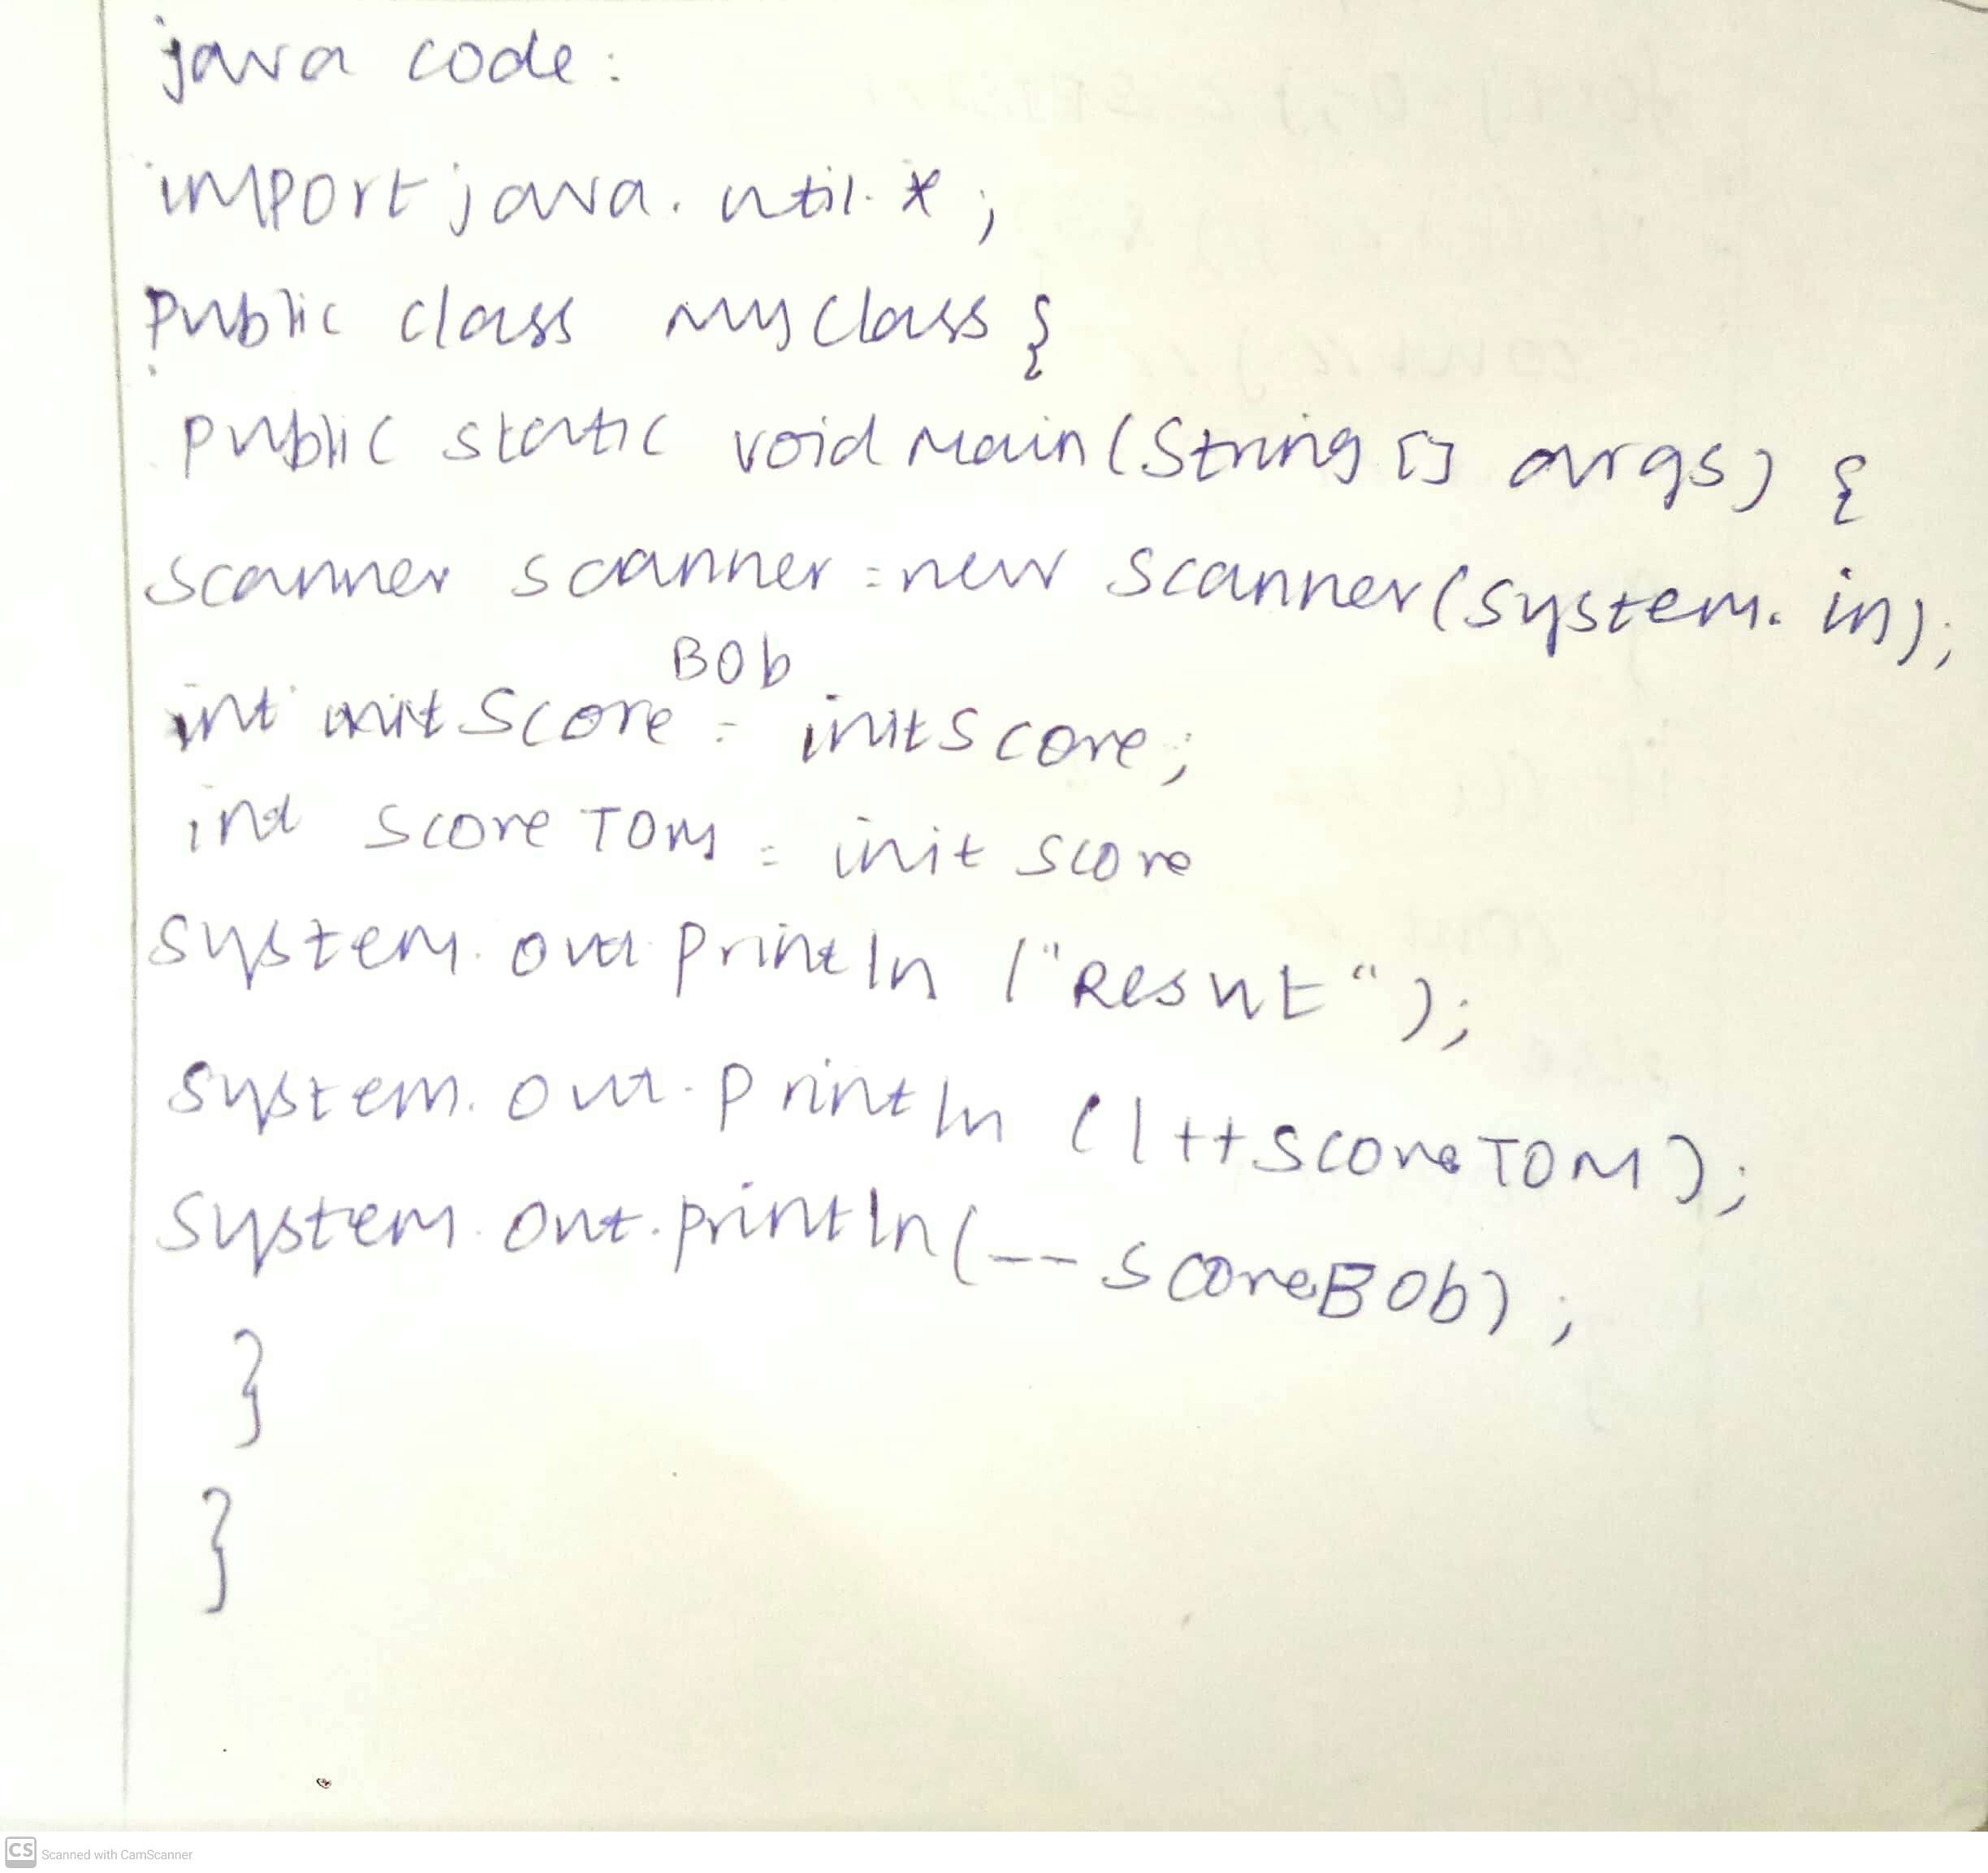 java code:
import java.util.*;
public class myclass {
public static void main(String [] args) {
Scanner scanner = new Scanner(System.in);
Bob
int init Score = initScore;
int score TOM = init score
System.out println ("Result");
System.out.println (1++scoreTOM);
System.out.println(--scoreBob);
}
}
CS Scanned with CamScanner